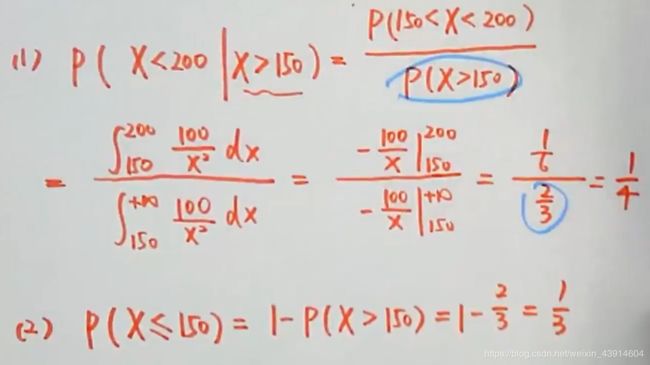 (1) P( X<200 | X>150) = P(150<X<200) / P(X>150)
= ∫₁₅₀²⁰⁰ 100/x² dx / ∫₁₅₀⁺∞ 100/x² dx = -100/x |₁₅₀²⁰⁰ / -100/x |₁₅₀⁺∞ = 1/6 / 2/3 = 1/4
(2) P(X≤150) = 1-P(X>150) = 1-2/3 = 1/3
https://blog.csdn.net/weixin_43914604